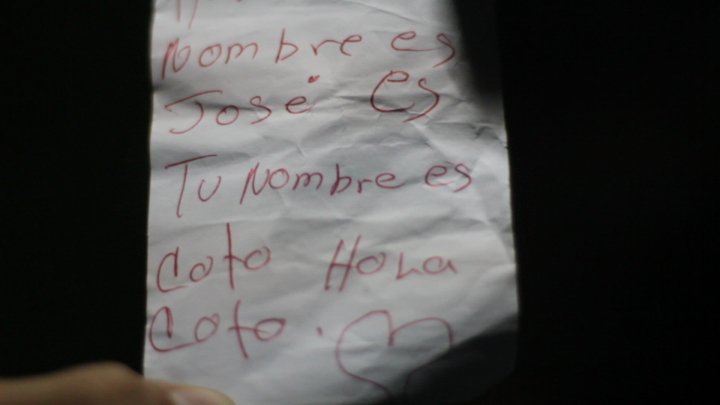 Nombre es
José es
Tu Nombre es
Coto Hola
Coto.